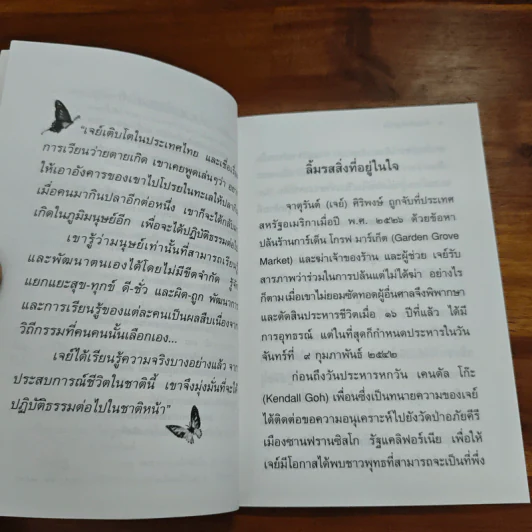 "เจย์เติบโตในประเทศไทย และเชื่อ
การเวียนว่ายตายเกิด เขาเคยพูดเล่นๆว่า อยาก
ให้เอาอังคารของเขาไปโปรยในทะเลให้ปลา
เมื่อคนมากินปลาอีกต่อหนึ่ง เขาก็จะได้กลับ
เกิดในภูมิมนุษย์อีก เพื่อจะได้ปฏิบัติธรรมต่อ
เขารู้ว่ามนุษย์เท่านั้นที่สามารถเรียน
และพัฒนาตนเองได้โดยไม่มีขีดจำกัด รู้จัก
แยกแยะสุข-ทุกข์ ดี-ชั่ว และผิด-ถูก พัฒนาการ
และการเรียนรู้ของแต่ละคนเป็นผลสืบเนื่องจาก
วิถีกรรมที่คนคนนั้นเลือกเอง...
เจย์ได้เรียนรู้ความจริงบางอย่างแล้ว จาก
ประสบการณ์ชีวิตในชาตินี้ เขาจึงมุ่งมั่นที่จะได้
ปฏิบัติธรรมต่อไปในชาติหน้า"
ลิ้มรสสิ่งที่อยู่ในใจ
จาตุรันต์ (เจย์) ศิริพงษ์ ถูกจับที่ประเทศ
สหรัฐอเมริกาเมื่อปี พ.ศ. ๒๕๒๖ ด้วยข้อหา
ปล้นร้านการ์เด็น โกรฟ มาร์เก็ต (Garden Grove
Market) และฆ่าเจ้าของร้าน และผู้ช่วย เจย์รับ
สารภาพว่าร่วมในการปล้นแต่ไม่ได้ฆ่า อย่างไร
ก็ตามเมื่อเขาไม่ยอมซัดทอดผู้อื่นศาลจึงพิพากษา
และตัดสินประหารชีวิตเมื่อ ๑๖ ปีที่แล้ว ได้มี
การอุทธรณ์ แต่ในที่สุดก็กำหนดประหารในวัน
จันทร์ที่ ๙ กุมภาพันธ์ ๒๕๔๒
ก่อนถึงวันประหารหกวัน เคนดัล โก๊ะ
(Kendall Goh) เพื่อนซึ่งเป็นทนายความของเจย์
ได้ติดต่อขอความอนุเคราะห์ไปยังวัดป่าอภัยคีรี
เมืองซานฟรานซิสโก รัฐแคลิฟอร์เนีย เพื่อให้
เจย์มีโอกาสได้พบชาวพุทธที่สามารถจะเป็นที่พึ่ง